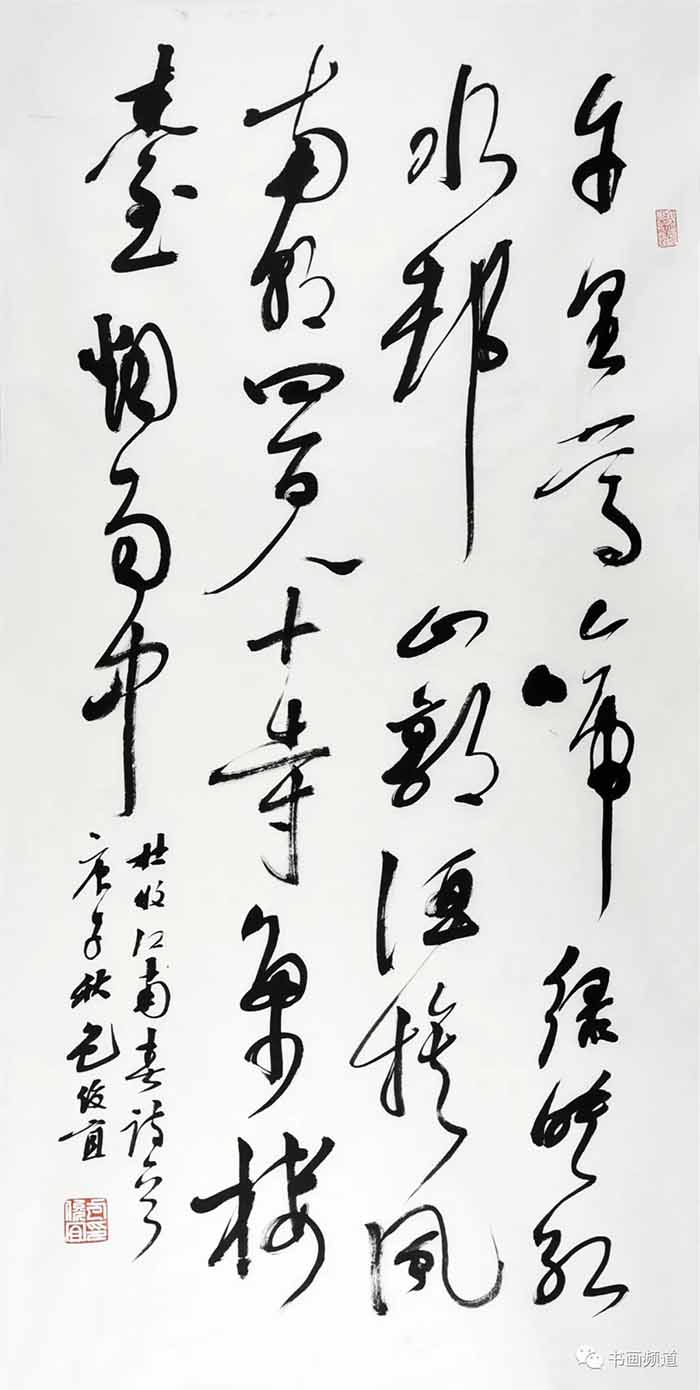 千里鶯啼綠映紅
水邨山郭酒旗風
南朝四百八十寺多少樓
臺烟雨中
杜牧江南春詩一首
庚子秋包俊宜
书画频道